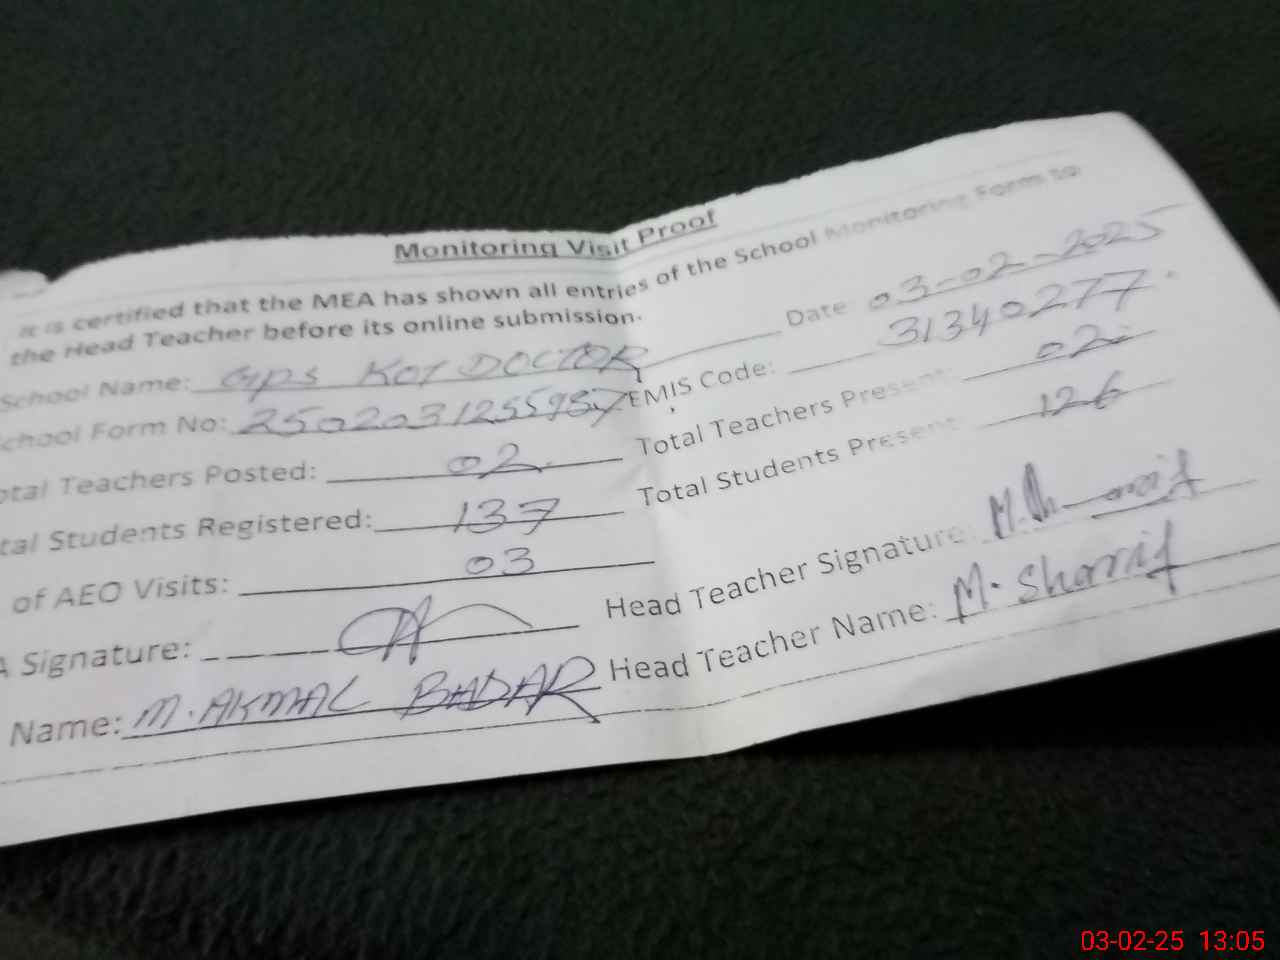 Monitoring Visit Proof
It is certified that the MEA has shown all entries of the School Monitoring Form to
the Head Teacher before its online submission.
Date 03-02-2025
School Name: GPS KOT DOCTOR
EMIS Code: 31340277
chool Form No: 2502031255957
Total Teachers Present: 02
otal Teachers Posted: 02
Total Students Present: 126
tal Students Registered: 137
of AEO Visits: 03
Head Teacher Signature:
A Signature:
Head Teacher Name: M. Sharrif
Name: M. AKMAL BADAR
03-02-25 13:05